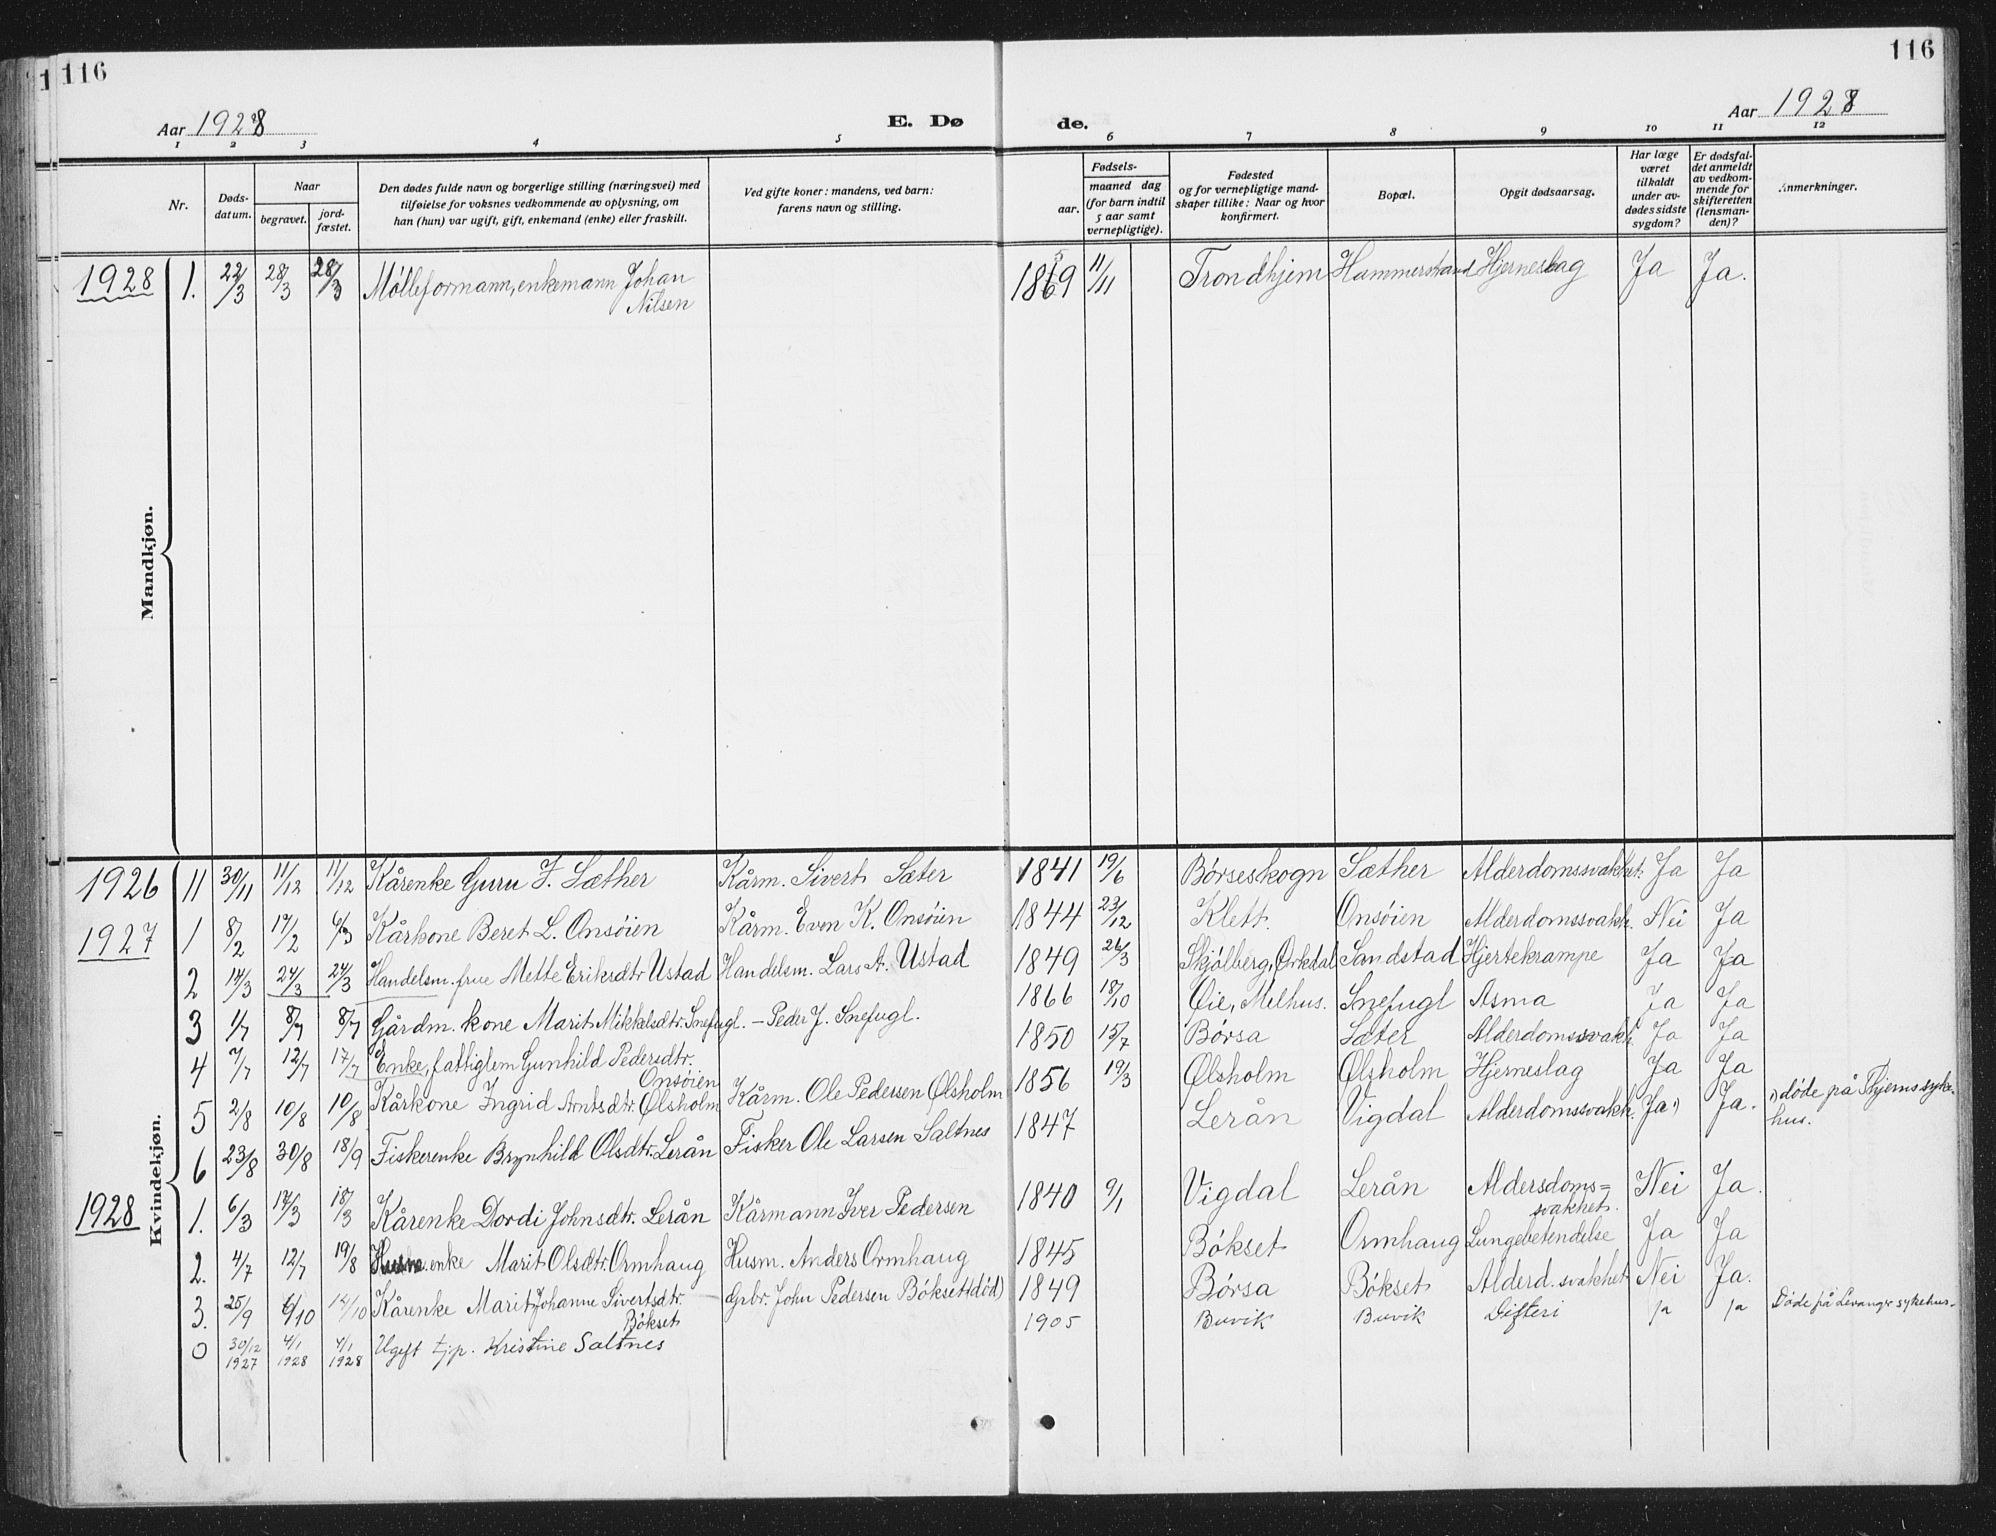 116
116
Aar 1928
E. Dø
de.
Aar 1928
1 2 3 4 5 6 7 8 9 10 11 12
Nr.
Døds-
datum.
Naar
begravet.
jord-
fæstet.
Den dødes fulde navn og borgerlige stilling (næringsvei) med
tilføielse for voksnes vedkommende av oplysning, om
han (hun) var ugift, gift, enkemand (enke) eller fraskilt.
Ved gifte koner: mandens, ved barn:
farens navn og stilling.
Fødsels-
aar.
maaned dag
(for barn indtil
5 aar samt
vernepligtige).
Fødested
og for vernepligtige mand-
skaper tillike: Naar og hvor
konfirmert.
Bopæl.
Opgit dødsaarsag.
Har læge
været
tilkaldt
under av-
dødes sidste
sygdom?
Er dødsfal-
det anmeldt
av vedkom-
mende for
skifteretten
(lensman-
den)?
Anmerkninger.
Mandkjøn.
1928 1. 22/3 28/3 28/3 Mølleformann, enkemann Johan
Nilsen
11/11 Trondhjem Hammerstrand Hjerneslag Ja Ja.
Kvindekjøn.
1926 11 30/11 11/12 11/12 Kårenke Guru J. Sæther Kårm. Sivert Sæter 1841 19/6 Børseskogn Sæther Alderdomssvakhet. Ja Ja
1927 1 8/2 17/2 6/3 Kårkone Beret L. Onsöien Kårm. Even K. Onsöien 1844 23/12 Klett. Onsöien Alderdomssvakh. Nei Ja
2 14/3 24/3 24/3 Handelsm. frue Mette Eriksdtr Ustad Handelsm. Lars A. Ustad 1849 26/3 Skjölberg, Orkdal Sandstad Hjertekrampe Ja Ja
3 1/7 8/7 8/7 Gårdm. kone Marit Mikkelsdtr. Snefugl. – Peder J. Snefugl. 1866 18/10 Öie, Melhus. Snefugl Asma Ja Ja
4 7/7 12/7 17/7 Enke, fattiglem Gunhild Pedersdtr.
Onsöien
1850 15/7 Børsa Sæter Alderdomssvakh. Ja Ja
5 2/8 10/8 10/8 Kårkone Ingrid Arntsdtr. Ølsholm Kårm. Ole Pedersen Ølsholm 1856 19/3 Ølsholm Ølsholm Hjerneslag Ja Ja
6 23/8 30/8 18/9 Fiskerenke Brynhild Olsdtr. Lerån Fisker Ole Larsen Saltnes 1847 Lerån Vigdal Alderdomssvakh. Ja 1) Ja. 1) døde på Thjems syke-
hus.
1928 1. 6/3 17/3 18/3 Kårenke Dordi Johnsdtr. Lerån Kårmann Iver Pedersen 1840 9/1 Vigdal Lerån Aldersdoms=
svakhet.
Nei Ja.
2. 4/7 12/7 19/8 enke Marit Olsdtr. Ormhaug Husm. Anders Ormhaug 1845 Bökset Ormhaug Lungebetendelse Ja Ja
3. 25/9 6/10 14/10 Kårenke Marit Johanne Sivertsdtr.
Bökset
Grbr. John Pedersen Bökset (död) 1849 Börsa Bökset Alderd. svakhet Nei Ja.
0 30/12 1927 4/1 1928 4/1 1928 Ugift tjp. Kristine Saltnes 1905 Buvik Buvik Difteri ja ja Døde på Levanger sykehus.